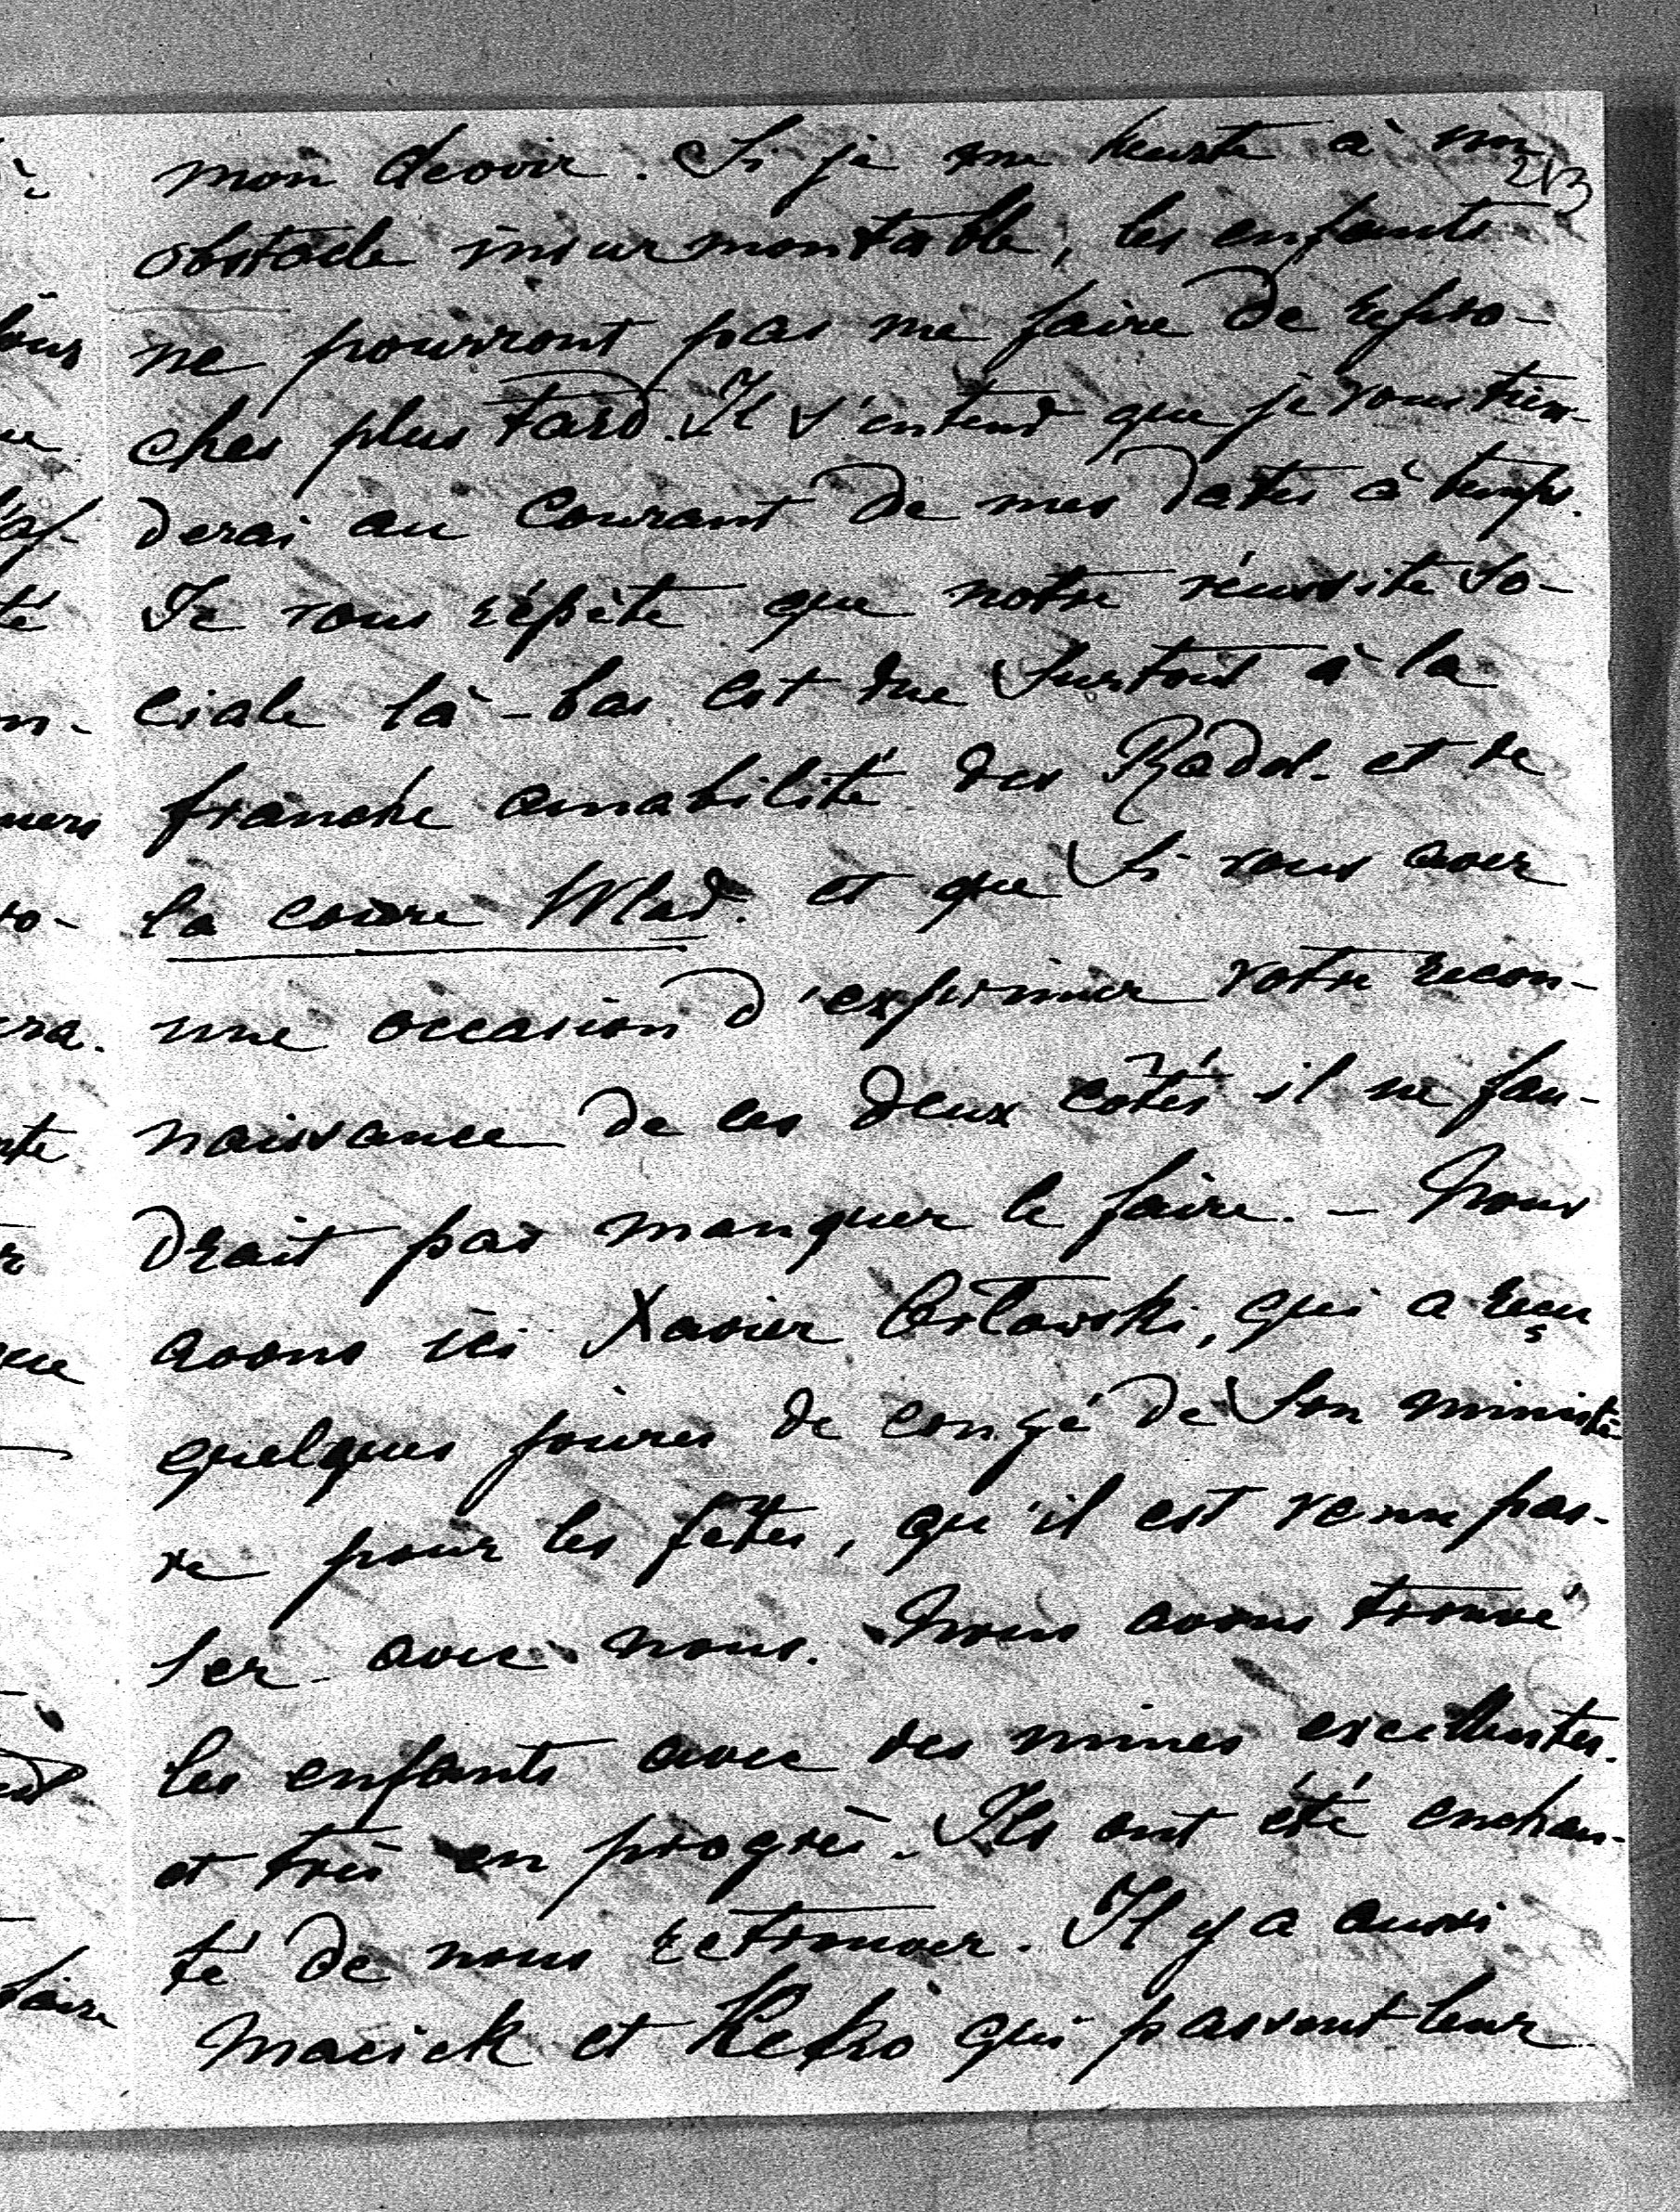 mon devoir. Si je me heurte à un
213
obstacle insurmontable, les enfants
ne pourront pas me faire de repro-
ches plus tard. Il s'entend que je vous tien-
derai au courant de mes dates à temps.
Je vous répète que notre réussite so-
ciale là-bas est due surtout à la
franche amabilité des Radd. et de
la Wlad. et que si vous avez
une occasion d'exprimer votre recon-
naissance de ces deux côtés il ne fau-
drait pas manquer le faire. – Nous
avons ici Xavier Orlowski, qui a reçu
quelques jours de congé de son ministè-
re pour les fêtes, qu'il est venu pas-
ser avec nous. Nous avons trouvé
les enfants avec des mines excellentes.
et très en progrès. Ils ont été enchan-
té de nous retrouver. Il y a aussi
Maciek et qui passent leur